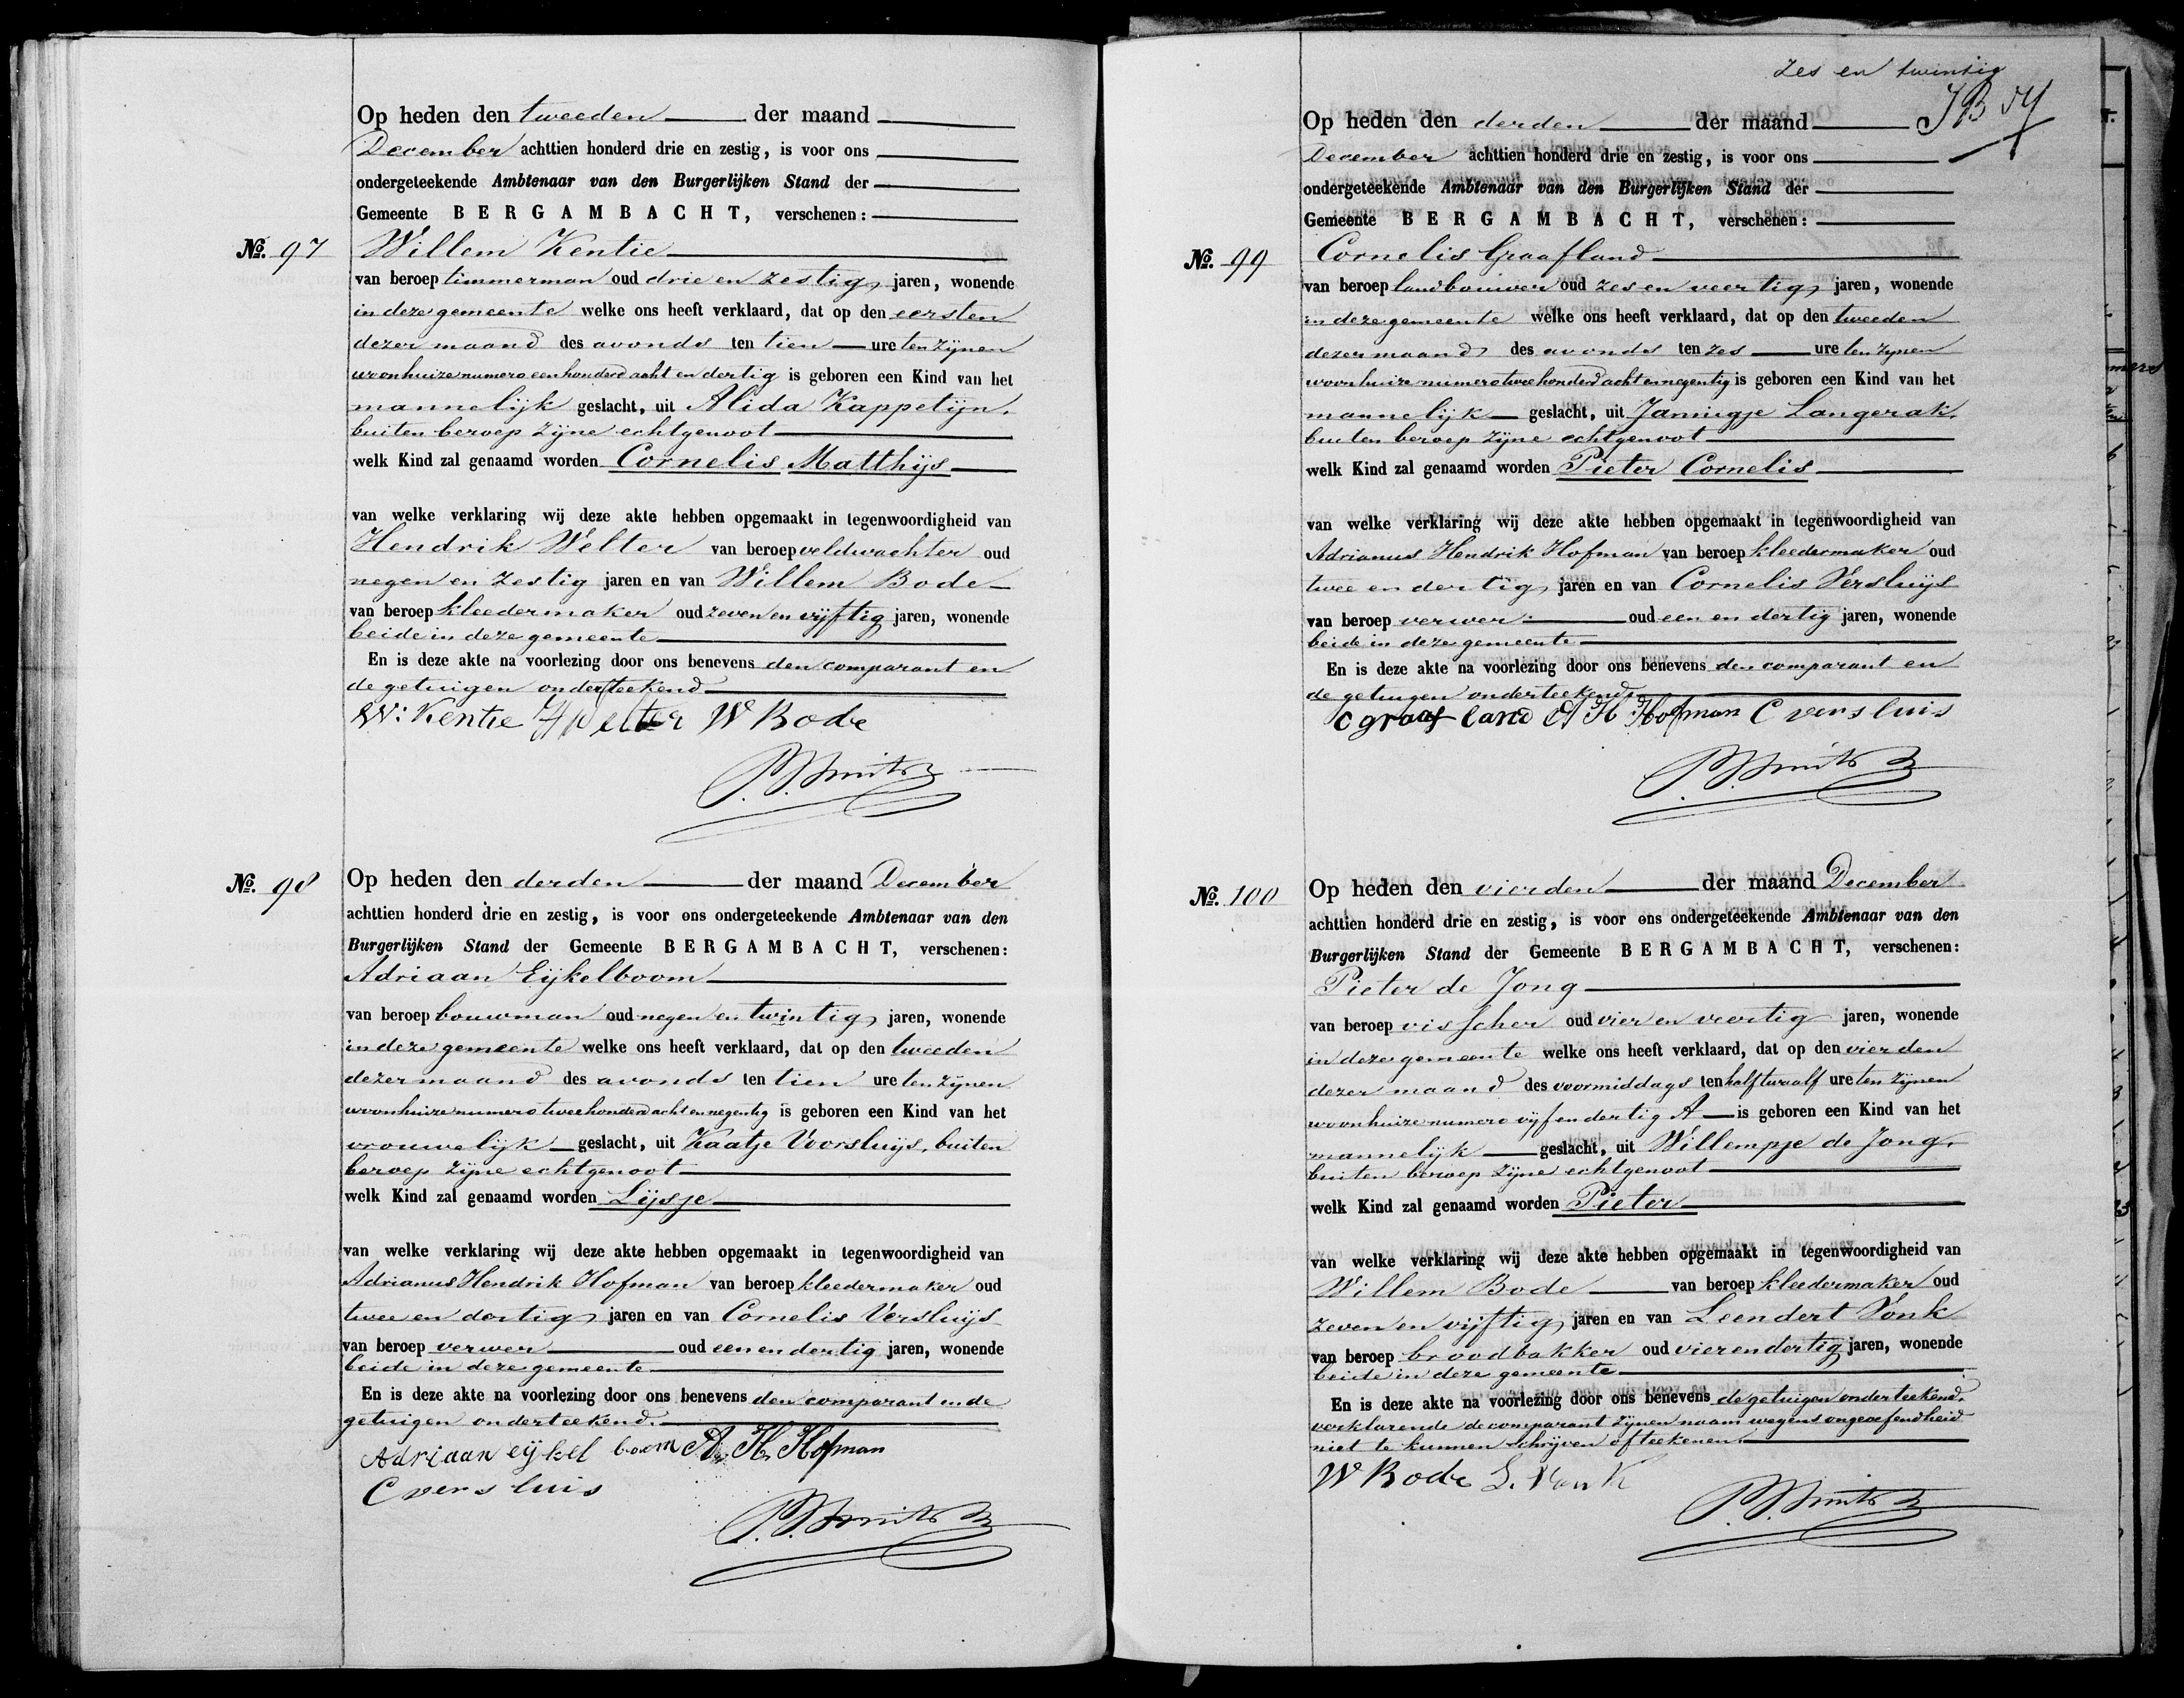 Op heden den tweeden der maand
December achttien honderd drie en zestig, is voor ons
ondergeteekende Ambtenaar van den Burgerlijken Stand der
Gemeente BERGAMBACHT, verschenen:
No. 97 Willem Kentie
van beroep timmerman oud drie en zestig jaren, wonende
in deze gemeente welke ons heeft verklaard, dat op den eersten
dezer maand des avonds ten tien ure ten zijnen
woonhuize numero een honderd acht en dertig is geboren een Kind van het
mannelijk geslacht, uit Alida Kappetijn,
buiten beroep zijne echtgenoot
welk Kind zal genaamd worden Cornelis Matthijs
van welke verklaring wij deze akte hebben opgemaakt in tegenwoordigheid van
Hendrik Welter van beroep veldwachter oud
negen en zestig jaren en van Willem Bode
van beroep kleedermaker oud zeven en vijftig jaren, wonende
beide in deze gemeente
En is deze akte na voorlezing door ons benevens den comparant en
de getuigen onderteekend
W: Kentie H Welter W Bode
No. 98 Op heden den derden der maand December
achttien honderd drie en zestig, is voor ons ondergeteekende Ambtenaar van den
Burgerlijken Stand der Gemeente BERGAMBACHT, verschenen:
Adriaan Eijkelboom
van beroep bouwman oud negen en twintig jaren, wonende
in deze gemeente welke ons heeft verklaard, dat op den tweeden
dezer maand des avonds ten tien ure ten zijnen
woonhuize numero twee honderd acht en negentig is geboren een Kind van het
vrouwelijk geslacht, uit Kaatje Voorsluijs, buiten
beroep zijne echtgenoot
welk Kind zal genaamd worden Lijsje
van welke verklaring wij deze akte hebben opgemaakt in tegenwoordigheid van
Adrianus Hendrik Hofman van beroep kleedermaker oud
twee en dertig jaren en van Cornelis Versluijs
van beroep verwer oud een en dertig jaren, wonende
beide in deze gemeente
En is deze akte na voorlezing door ons benevens den comparant en de
getuigen onderteekend.
Adriaan eijkel boom A. H. Hofman
C versluis
P. Smits
zes en twintig
Op heden den derden der maand
December achttien honderd drie en zestig, is voor ons
ondergeteekende Ambtenaar van den Burgerlijken Stand der
Gemeente BERGAMBACHT, verschenen:
No. 99 Cornelis Graafland
van beroep landbouwer oud zes en veertig jaren, wonende
in deze gemeente welke ons heeft verklaard, dat op den tweeden
dezer maand des avonds ten zes ure ten zijnen
woonhuize numero twee honderd acht en negentig is geboren een Kind van het
mannelijk geslacht, uit Jannigje Langerak,
buiten beroep zijne echtgenoot
welk Kind zal genaamd worden Pieter Cornelis
van welke verklaring wij deze akte hebben opgemaakt in tegenwoordigheid van
Adrianus Hendrik Hofman van beroep kleedermaker oud
twee en dertig jaren en van Cornelis Versluijs
van beroep verwer oud een en dertig jaren, wonende
beide in deze gemeente
En is deze akte na voorlezing door ons benevens den comparant en
de getuigen onderteekend.
C graaf land A H Hofman C versluis
No. 100 Op heden den vierden der maand December
achttien honderd drie en zestig, is voor ons ondergeteekende Ambtenaar van den
Burgerlijken Stand der Gemeente BERGAMBACHT, verschenen:
Pieter de Jong
van beroep visscher oud vier en veertig jaren, wonende
in deze gemeente welke ons heeft verklaard, dat op den vierden
dezer maand des voormiddags ten half twaalf ure ten zijnen
woonhuize numero vijf en dertig A is geboren een Kind van het
mannelijk geslacht, uit Willempje de Jong,
buiten beroep zijne echtgenoot
welk Kind zal genaamd worden Pieter
van welke verklaring wij deze akte hebben opgemaakt in tegenwoordigheid van
Willem Bode van beroep kleedermaker oud
zeven en vijftig jaren en van Leendert Vonk
van beroep broodbakker oud vier en dertig jaren, wonende
beide in deze gemeente
En is deze akte na voorlezing door ons benevens de getuigen onderteekend,
verklarende de comparant zijnen naam wegens ongeoefendheid
niet te kunnen schrijven of teekenen.
W Bode L. Vonk